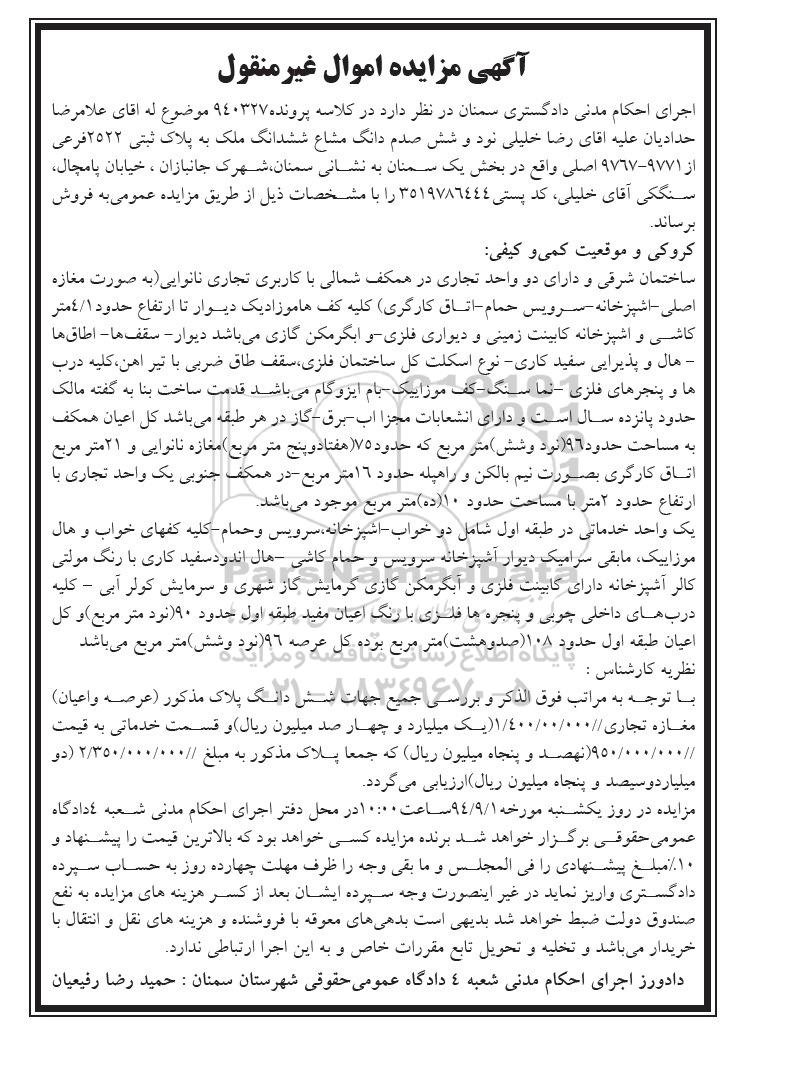 آگهی مزایده اموال غیرمنقول
اجرای احکام مدنی دادگستری سمنان در نظر دارد در کلاسه پرونده۹۴۰۳۲۷ موضوع له اقای علامرضا
حدادیان علیه اقای رضا خلیلی نود و شش صدم دانگ مشاع ششدانگ ملک به پلاک ثبتی ۲۵۲۲فرعی
از۹۷۷۱-۹۷۶۷ اصلی واقع در بخش یک سمنان به نشانی سمنان،شهرک جانبازان ، خیابان پامچال،
سنگکی آقای خلیلی، کد پستی۳۵۱۹۷۸۶۴۴۴ را با مشخصات ذیل از طریق مزایده عمومی‌به فروش
برساند.
کروکی و موقعیت کمی‌و کیفی:
ساختمان شرقی و دارای دو واحد تجاری در همکف شمالی با کاربری تجاری نانوایی(به صورت مغازه
اصلی-اشپزخانه-سرویس حمام-اتاق کارگری) کلیه کف هاموزادیک دیوار تا ارتفاع حدود۴/۱متر
کاشی و اشپزخانه کابینت زمینی و دیواری فلزی-و ابگرمکن گازی می‌باشد دیوار- سقف‌ها- اطاق‌ها
- هال و پذیرایی سفید کاری- نوع اسکلت کل ساختمان فلزی،سقف طاق ضربی با تیر اهن،کلیه درب
ها و پنجرهای فلزی -نما سنگ-کف موزاییک-بام ایزوگام می‌باشد قدمت ساخت بنا به گفته مالک
حدود پانزده سال است و دارای انشعابات مجزا اب-برق-گاز در هر طبقه می‌باشد کل اعیان همکف
به مساحت حدود۹۶(نود وشش)متر مربع که حدود۷۵(هفتادوپنج متر مربع)مغازه نانوایی و ۲۱متر مربع
اتاق کارگری بصورت نیم بالکن و راهپله حدود ۱۶متر مربع-در همکف جنوبی یک واحد تجاری با
ارتفاع حدود ۲متر با مساحت حدود ۱۰(ده)متر مربع موجود می‌باشد.
یک واحد خدماتی در طبقه اول شامل دو خواب-اشپزخانه،سرویس وحمام-کلیه کفهای خواب و هال
موزاییک، مابقی سرامیک دیوار آشپزخانه سرویس و حمام کاشی -هال اندودسفید کاری با رنگ مولتی
کالر آشپزخانه دارای کابینت فلزی و آبگرمکن گازی گرمایش گاز شهری و سرمایش کولر آبی - کلیه
درب‌های داخلی چوبی و پنجره ها فلزی با رنگ اعیان مفید طبقه اول حدود ۹۰(نود متر مربع)و کل
اعیان طبقه اول حدود ۱۰۸(صدوهشت)متر مربع بوده کل عرصه ۹۶(نود وشش)متر مربع می‌باشد
نظریه کارشناس :
با توجه به مراتب فوق الذکر و بررسی جمیع جهات شش دانگ پلاک مذکور (عرصه واعیان)
مغازه تجاری//۱/۴۰۰/۰۰/۰۰۰(یک میلیارد و چهار صد میلیون ریال)و قسمت خدماتی به قیمت
//۹۵۰/۰۰۰/۰۰۰(نهصد و پنجاه میلیون ریال) که جمعا پلاک مذکور به مبلغ //۲/۳۵۰/۰۰۰/۰۰۰ (دو
میلیاردوسیصد و پنجاه میلیون ریال)ارزیابی می‌گردد.
مزایده در روز یکشنبه مورخه۹۴/۹/۱ساعت۱۰:۰۰در محل دفتر اجرای احکام مدنی شعبه ۴دادگاه
عمومی‌حقوقی برگزار خواهد شد برنده مزایده کسی خواهد بود که بالاترین قیمت را پیشنهاد و
۱۰٪مبلغ پیشنهادی را فی المجلس و ما بقی وجه را ظرف مهلت چهارده روز به حساب سپرده
دادگستری واریز نماید در غیر اینصورت وجه سپرده ایشان بعد از کسر هزینه های مزایده به نفع
صندوق دولت ضبط خواهد شد بدیهی است بدهی‌های معوقه با فروشنده و هزینه های نقل و انتقال با
خریدار می‌باشد و تخلیه و تحویل تابع مقررات خاص و به این اجرا ارتباطی ندارد.
دادورز اجرای احکام مدنی شعبه ۴ دادگاه عمومی‌حقوقی شهرستان سمنان : حمید رضا رفیعیان
ParsNamadData
پایگاه اطلاع رسانی مناقصه و مزایده
۰۲۱-۸۸۳۴۹۶۷۰-۵